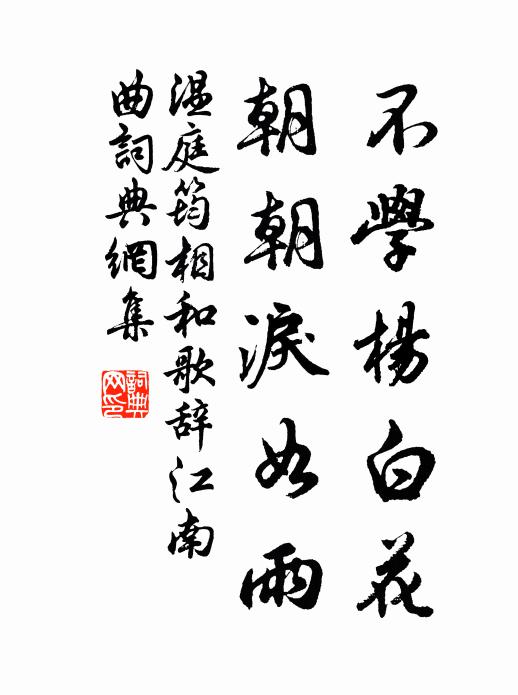 不學楊白花
朝朝淚如雨
温庭筠相和歌辞江南
曲詞典網集
詞典
网印